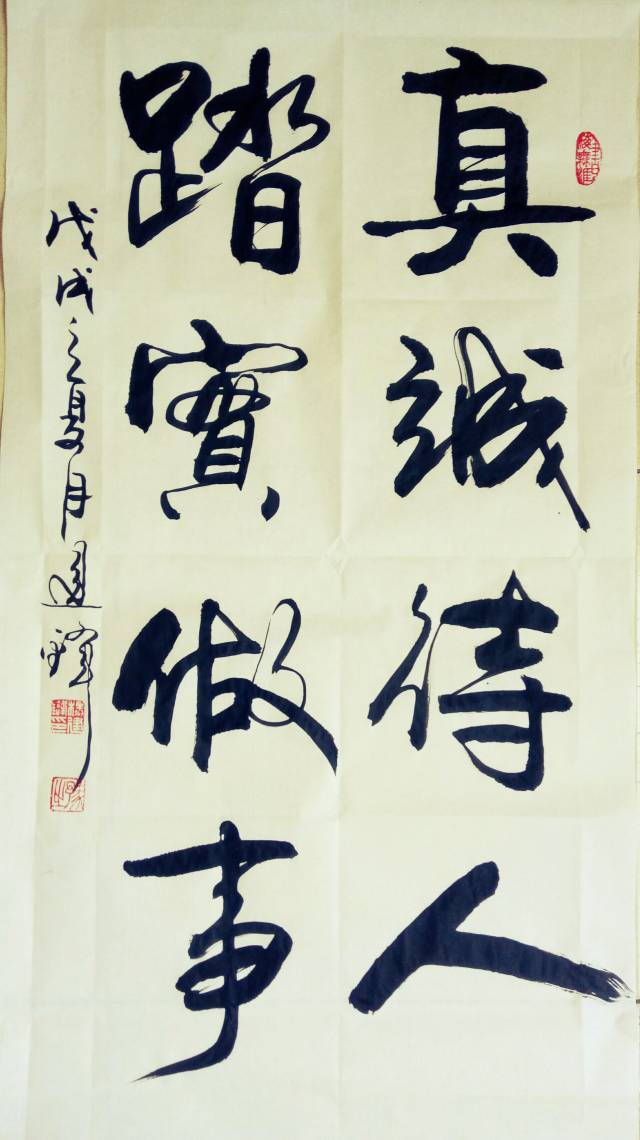 真誠待人
踏實做事
戊戌之夏月建輝